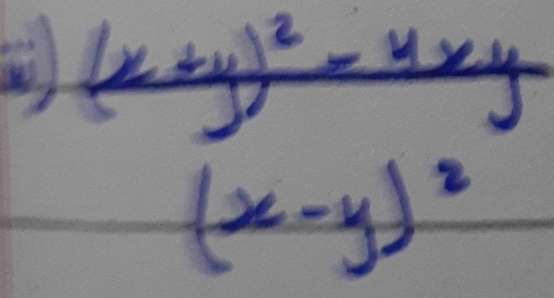 iii) (x+y)² - 4xy
(x-y)²